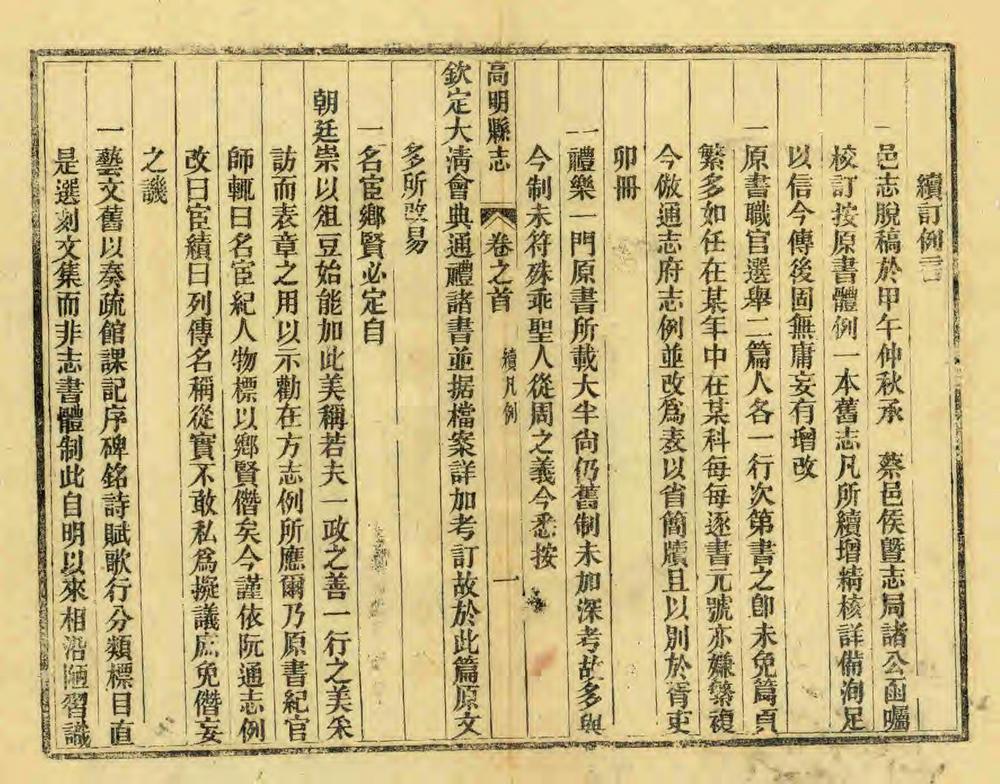 續訂例言
一邑志脫稿於甲午仲秋承　蔡邑侯曁志局諸公函囑
校訂按原書體例一本舊志凡所續增精核詳備洵足
以信今傳後固無庸妄有增改
一原書職官選舉二篇人各一行次第書之卽未免篇頁
繁多如任在某年中在某科每每逐書元號亦嫌繁複
今倣通志府志例並改爲表以省簡牘且以別於胥吏
卯冊
一禮樂一門原書所載大半尙仍舊制未加深考故多與
今制未符殊乖聖人從周之義今悉按
高明縣志　卷之首　續凡例　一
欽定大淸會典通禮諸書並据檔案詳加考訂故於此篇原文
多所改易
一名宦鄉賢必定自
朝廷崇以俎豆始能加此美稱若夫一政之善一行之美采
訪而表章之用以示勸在方志例所應爾乃原書紀官
師輒曰名宦紀人物標以鄉賢僭矣今謹依阮通志例
改曰宦績曰列傳名稱從實不敢私爲擬議庶免僭妄
之譏
一藝文舊以奏疏館課記序碑銘詩賦歌行分類標目直
是選刻文集而非志書體制此自明以來相沿陋習識